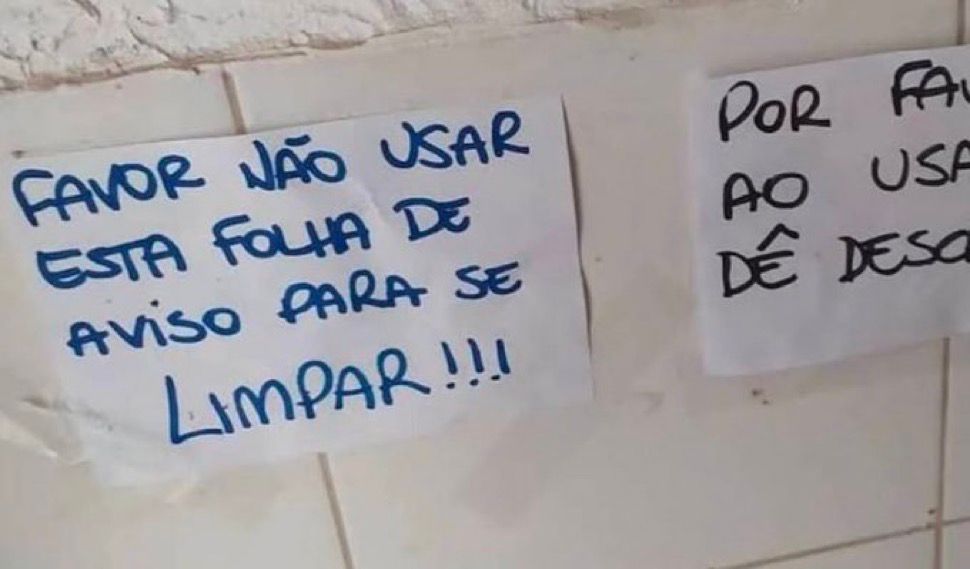 FAVOR NÃO USAR
ESTA FOLHA DE
AVISO PARA SE
LIMPAR!!!
POR
AO
DÊ